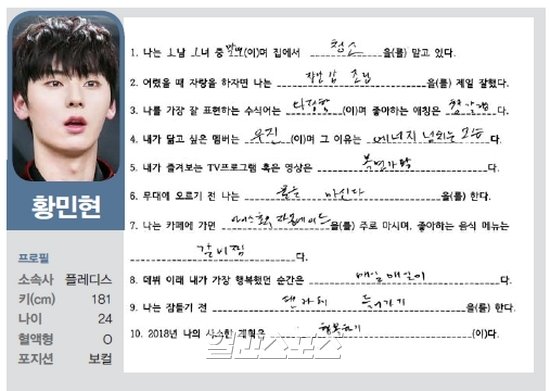 황민현
프로필
소속사 플레디스
키(cm) 181
나이 24
혈액형 O
포지션 보컬
1. 나는 1남 1녀 중 막내(이)며 집에서 청소을(를) 맡고 있다.
2. 어렸을 때 자랑을 하자면 나는 장난감 조립을(를) 제일 잘했다.
3. 나를 가장 잘 표현하는 수식어는 다정함(이)며 좋아하는 애칭은 다.
4. 내가 닮고 싶은 멤버는 우진(이)며 그 이유는 에너지 넘치는 다.
5. 내가 즐겨보는 TV프로그램 혹은 영상은 복면가왕 다.
6. 무대에 오르기 전 나는 물을 마신다 을(를) 한다.
7. 나는 카페에 가면 을(를) 주로 마시며, 좋아하는 음식 메뉴는
갈비찜 다.
8. 데뷔 이래 내가 가장 행복했던 순간은 매일매일이 다.
9. 나는 잠들기 전 을(를) 한다.
10. 2018년 나의 사소한 계획은 행복하기 (이)다.
일간스포츠